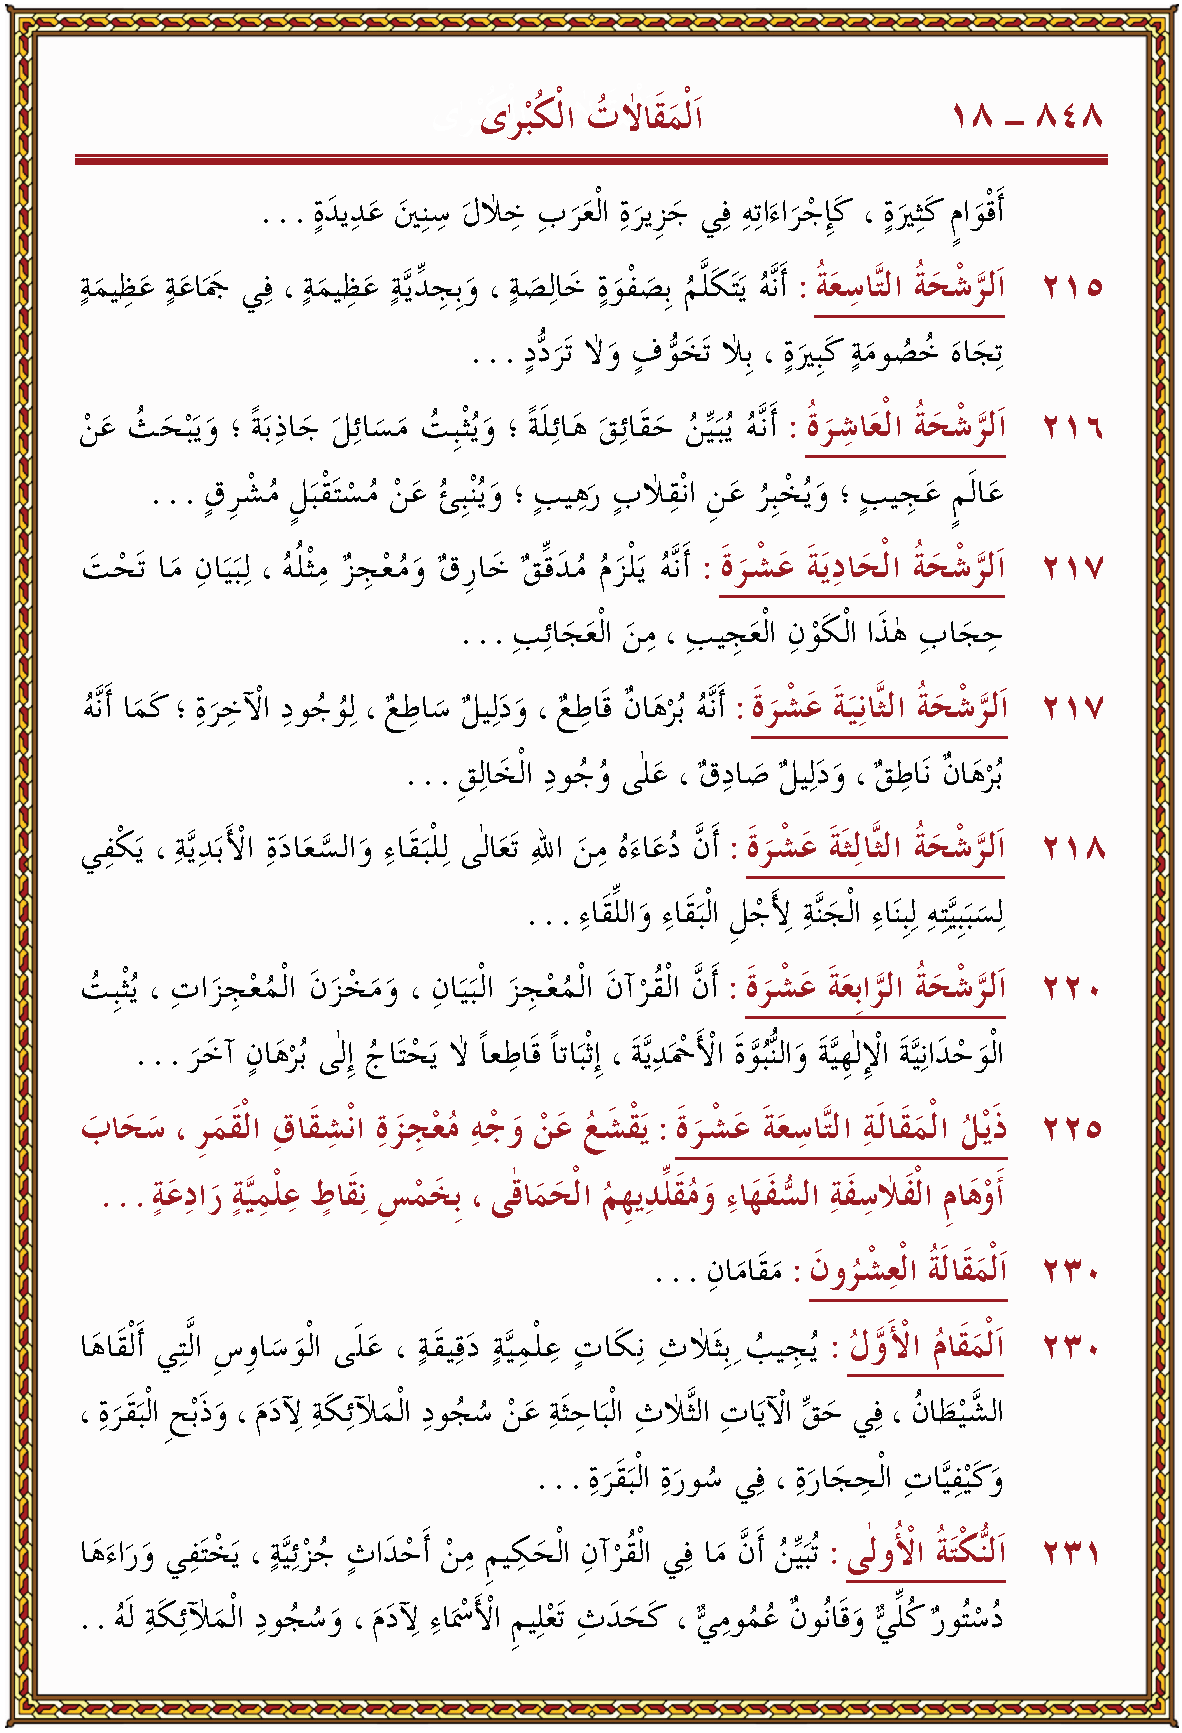 ٨٤٨ – ١٨ اَلْمَقَالَاتُ الْكُبْرٰى
أَقْوَامٍ كَثِيرَةٍ ، كَإِجْرَاءَاتِهِ فِي جَزِيرَةِ الْعَرَبِ خِلَالَ سِنِينَ عَدِيدَةٍ . . .
٢١٥ اَلرَّشْحَةُ التَّاسِعَةُ : أَنَّهُ يَتَكَلَّمُ بِصَفْوَةٍ خَالِصَةٍ ، وَبِجِدِّيَّةٍ عَظِيمَةٍ ، فِي جَمَاعَةٍ عَظِيمَةٍ
تِجَاهَ خُصُومَةٍ كَبِيرَةٍ ، بِلَا تَخَوُّفٍ وَلَا تَرَدُّدٍ . . .
٢١٦ اَلرَّشْحَةُ الْعَاشِرَةُ : أَنَّهُ يُبَيِّنُ حَقَائِقَ هَائِلَةً ؛ وَيُثْبِتُ مَسَائِلَ جَاذِبَةً ؛ وَيَبْحَثُ عَنْ
عَالَمٍ عَجِيبٍ ؛ وَيُخْبِرُ عَنِ انْقِلَابٍ رَهِيبٍ ؛ وَيُنْبِئُ عَنْ مُسْتَقْبَلٍ مُشْرِقٍ . . .
٢١٧ اَلرَّشْحَةُ الْحَادِيَةَ عَشْرَةَ : أَنَّهُ يَلْزَمُ مُدَقِّقٌ خَارِقٌ وَمُعْجِزٌ مِثْلُهُ ، لِبَيَانِ مَا تَحْتَ
حِجَابِ هٰذَا الْكَوْنِ الْعَجِيبِ ، مِنَ الْعَجَائِبِ . . .
٢١٧ اَلرَّشْحَةُ الثَّانِيَةَ عَشْرَةَ : أَنَّهُ بُرْهَانٌ قَاطِعٌ ، وَدَلِيلٌ سَاطِعٌ ، لِوُجُودِ الْآخِرَةِ ؛ كَمَا أَنَّهُ
بُرْهَانٌ نَاطِقٌ ، وَدَلِيلٌ صَادِقٌ ، عَلٰى وُجُودِ الْخَالِقِ . . .
٢١٨ اَلرَّشْحَةُ الثَّالِثَةَ عَشْرَةَ : أَنَّ دُعَاءَهُ مِنَ اللهِ تَعَالٰى لِلْبَقَاءِ وَالسَّعَادَةِ الْأَبَدِيَّةِ ، يَكْفِي
لِسَبَبِيَّتِهِ لِبِنَاءِ الْجَنَّةِ لِأَجْلِ الْبَقَاءِ وَاللِّقَاءِ . . .
٢٢٠ اَلرَّشْحَةُ الرَّابِعَةَ عَشْرَةَ : أَنَّ الْقُرْآنَ الْمُعْجِزَ الْبَيَانِ ، وَمَخْزَنَ الْمُعْجِزَاتِ ، يُثْبِتُ
الْوَحْدَانِيَّةَ الْإِلٰهِيَّةَ وَالنُّبُوَّةَ الْأَحْمَدِيَّةَ ، إِثْبَاتاً قَاطِعاً لَا يَحْتَاجُ إِلٰى بُرْهَانٍ آخَرَ . . .
٢٢٥ ذَيْلُ الْمَقَالَةِ التَّاسِعَةَ عَشْرَةَ : يَقْشَعُ عَنْ وَجْهِ مُعْجِزَةِ انْشِقَاقِ الْقَمَرِ ، سَحَابَ
أَوْهَامِ الْفَلَاسِفَةِ السُّفَهَاءِ وَمُقَلِّدِيهِمُ الْحَمَاقٰى ، بِخَمْسِ نِقَاطٍ عِلْمِيَّةٍ رَادِعَةٍ . . .
٢٣٠ اَلْمَقَالَةُ الْعِشْرُونَ : مَقَامَانِ . . .
٢٣٠ اَلْمَقَامُ الْأَوَّلُ : يُجِيبُ بِثَلَاثِ نِكَاتٍ عِلْمِيَّةٍ دَقِيقَةٍ ، عَلَى الْوَسَاوِسِ الَّتِي أَلْقَاهَا
الشَّيْطَانُ ، فِي حَقِّ الْآيَاتِ الثَّلَاثِ الْبَاحِثَةِ عَنْ سُجُودِ الْمَلَآئِكَةِ لِآدَمَ ، وَذَبْحِ الْبَقَرَةِ ،
وَكَيْفِيَّاتِ الْحِجَارَةِ ، فِي سُورَةِ الْبَقَرَةِ . . .
٢٣١ اَلنُّكْتَةُ الْأُولٰى : تُبَيِّنُ أَنَّ مَا فِي الْقُرْآنِ الْحَكِيمِ مِنْ أَحْدَاثٍ جُزْئِيَّةٍ ، يَخْتَفِي وَرَاءَهَا
دُسْتُورٌ كُلِّيٌّ وَقَانُونٌ عُمُومِيٌّ ، كَحَدَثِ تَعْلِيمِ الْأَسْمَاءِ لِآدَمَ ، وَسُجُودِ الْمَلَآئِكَةِ لَهُ . .